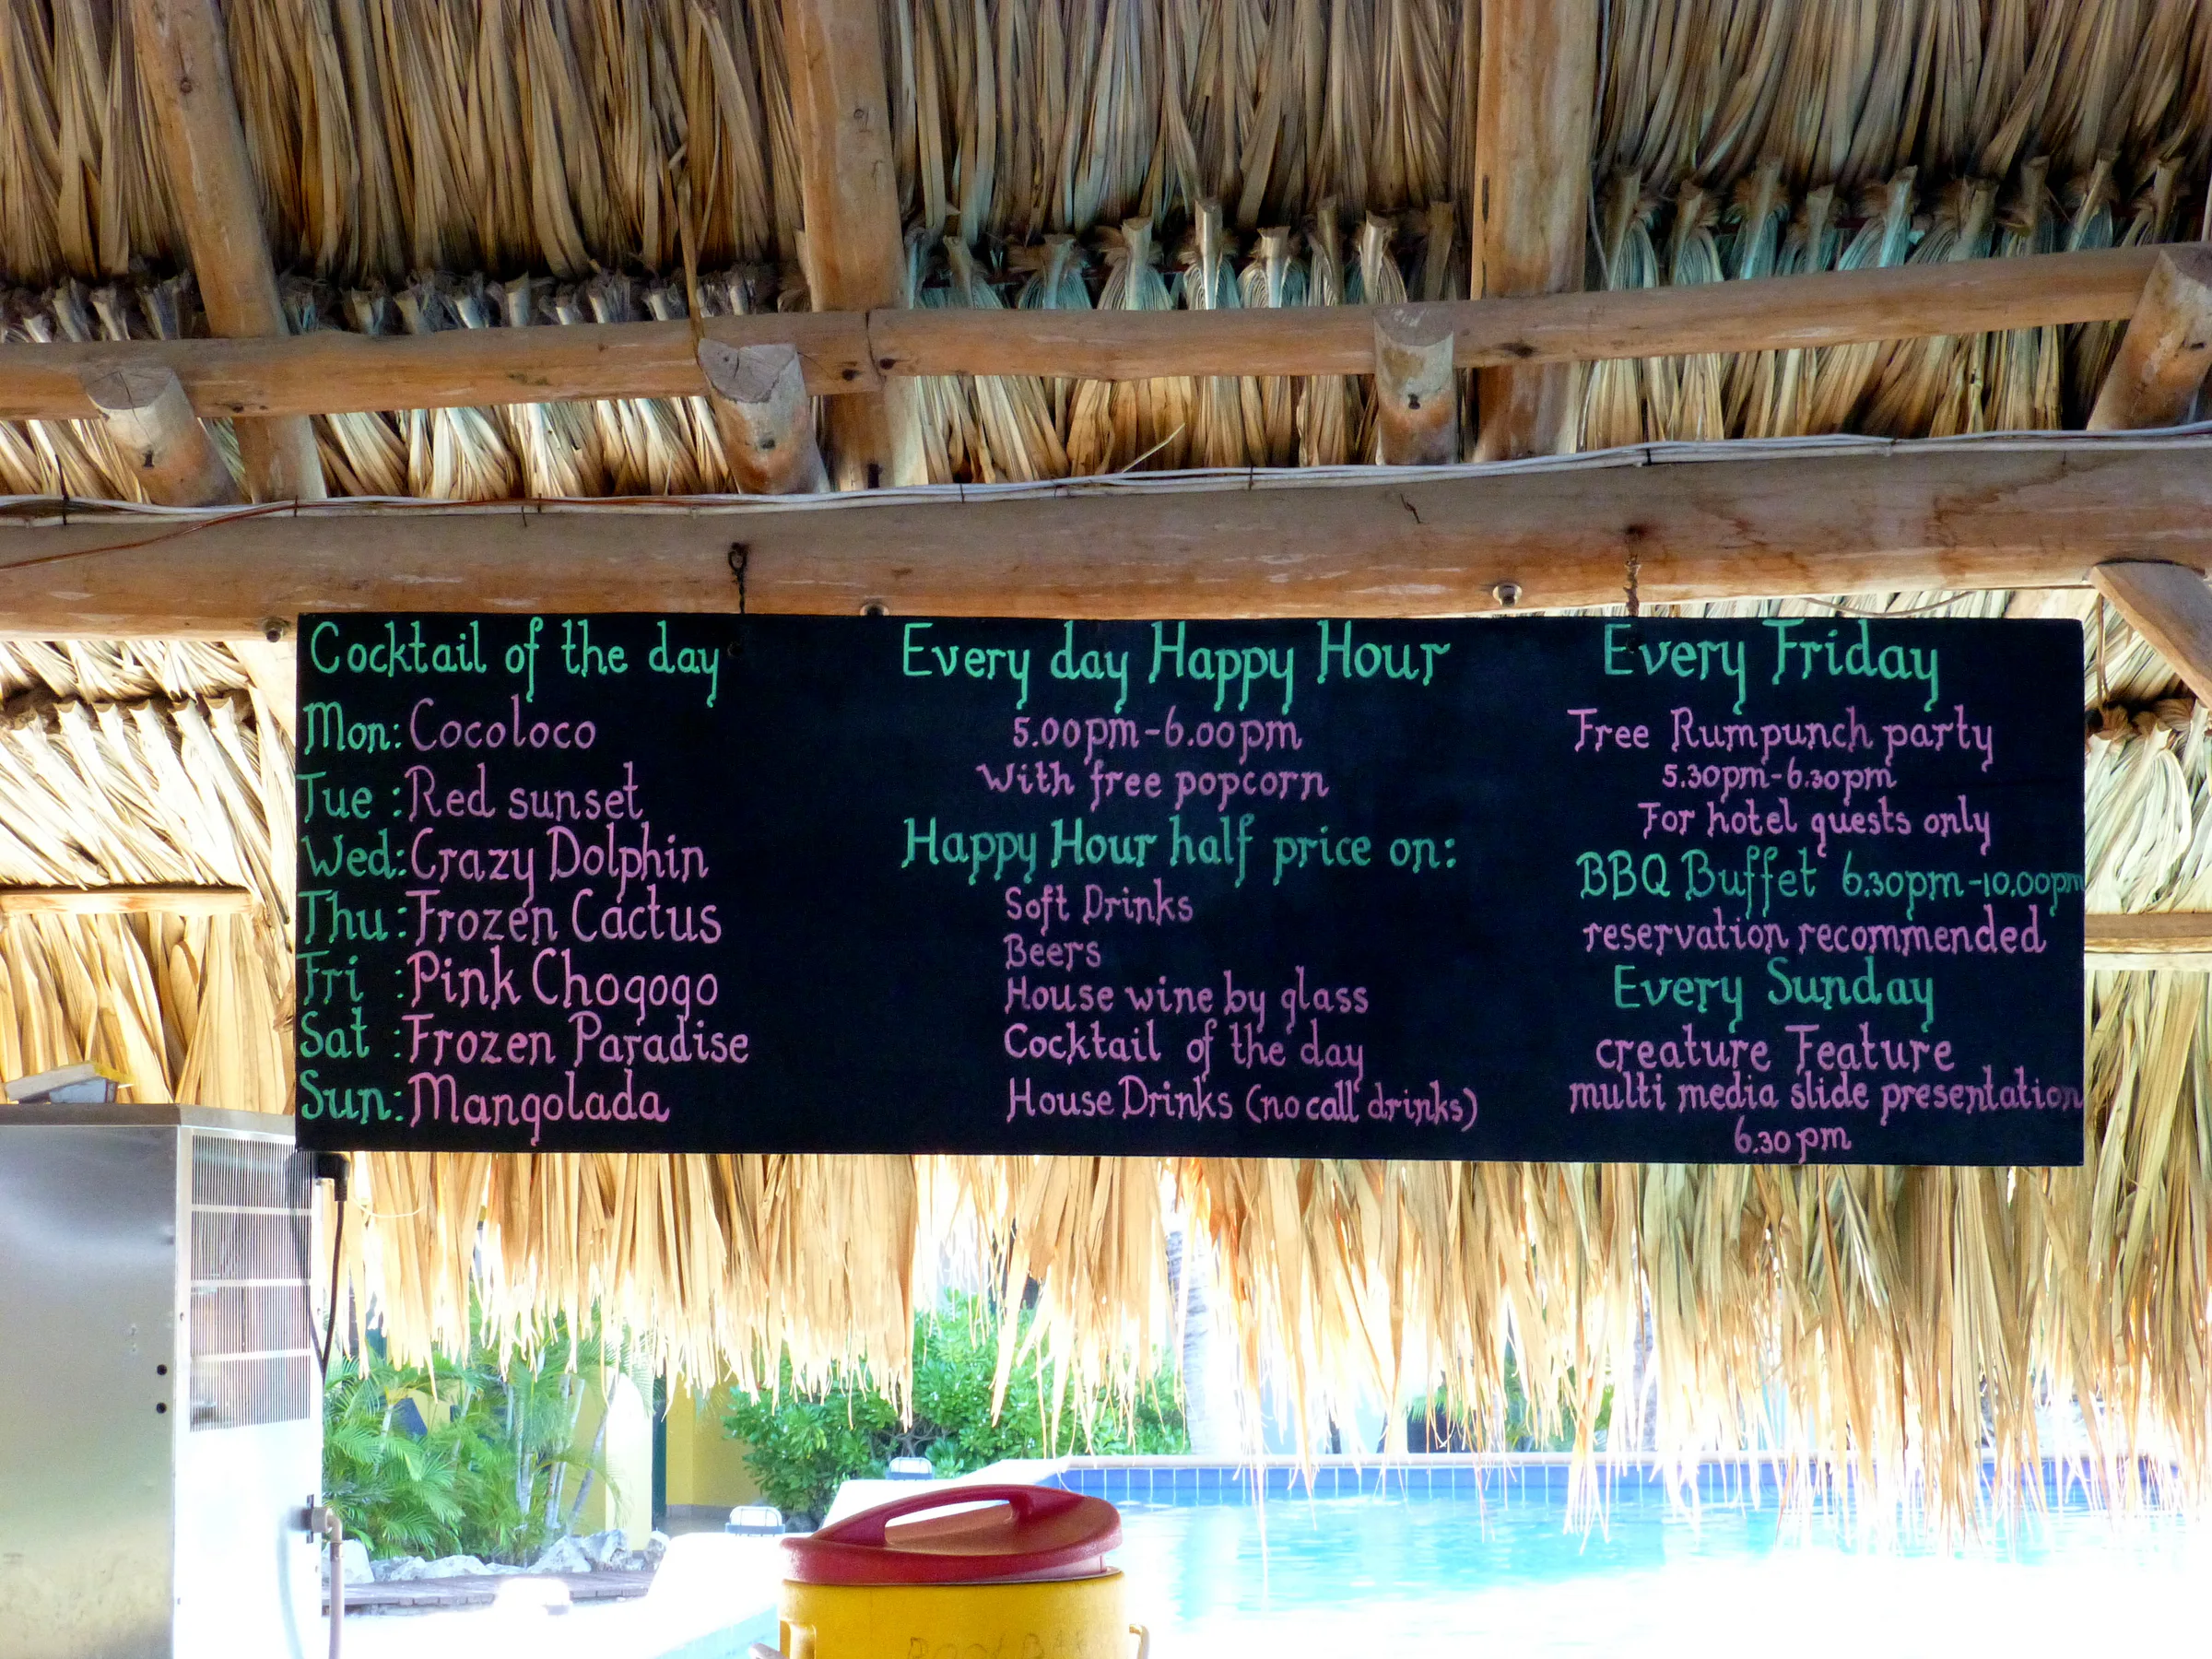 Cocktail of the day
Mon: Cocoloco
Tue : Red sunset
Wed: Crazy Dolphin
Thu : Frozen Cactus
Fri : Pink Chogogo
Sat : Frozen Paradise
Sun: Mangolada
Every day Happy Hour
5.00pm-6.00pm
With free popcorn
Happy Hour half price on:
Soft Drinks
Beers
House wine by glass
Cocktail of the day
House Drinks (no call drinks)
Every Friday
Free Rumpunch party
5.30pm-6.30pm
For hotel guests only
BBQ Buffet 6.30pm-10.00pm
reservation recommended
Every Sunday
creature Feature
multi media slide presentation
6.30pm